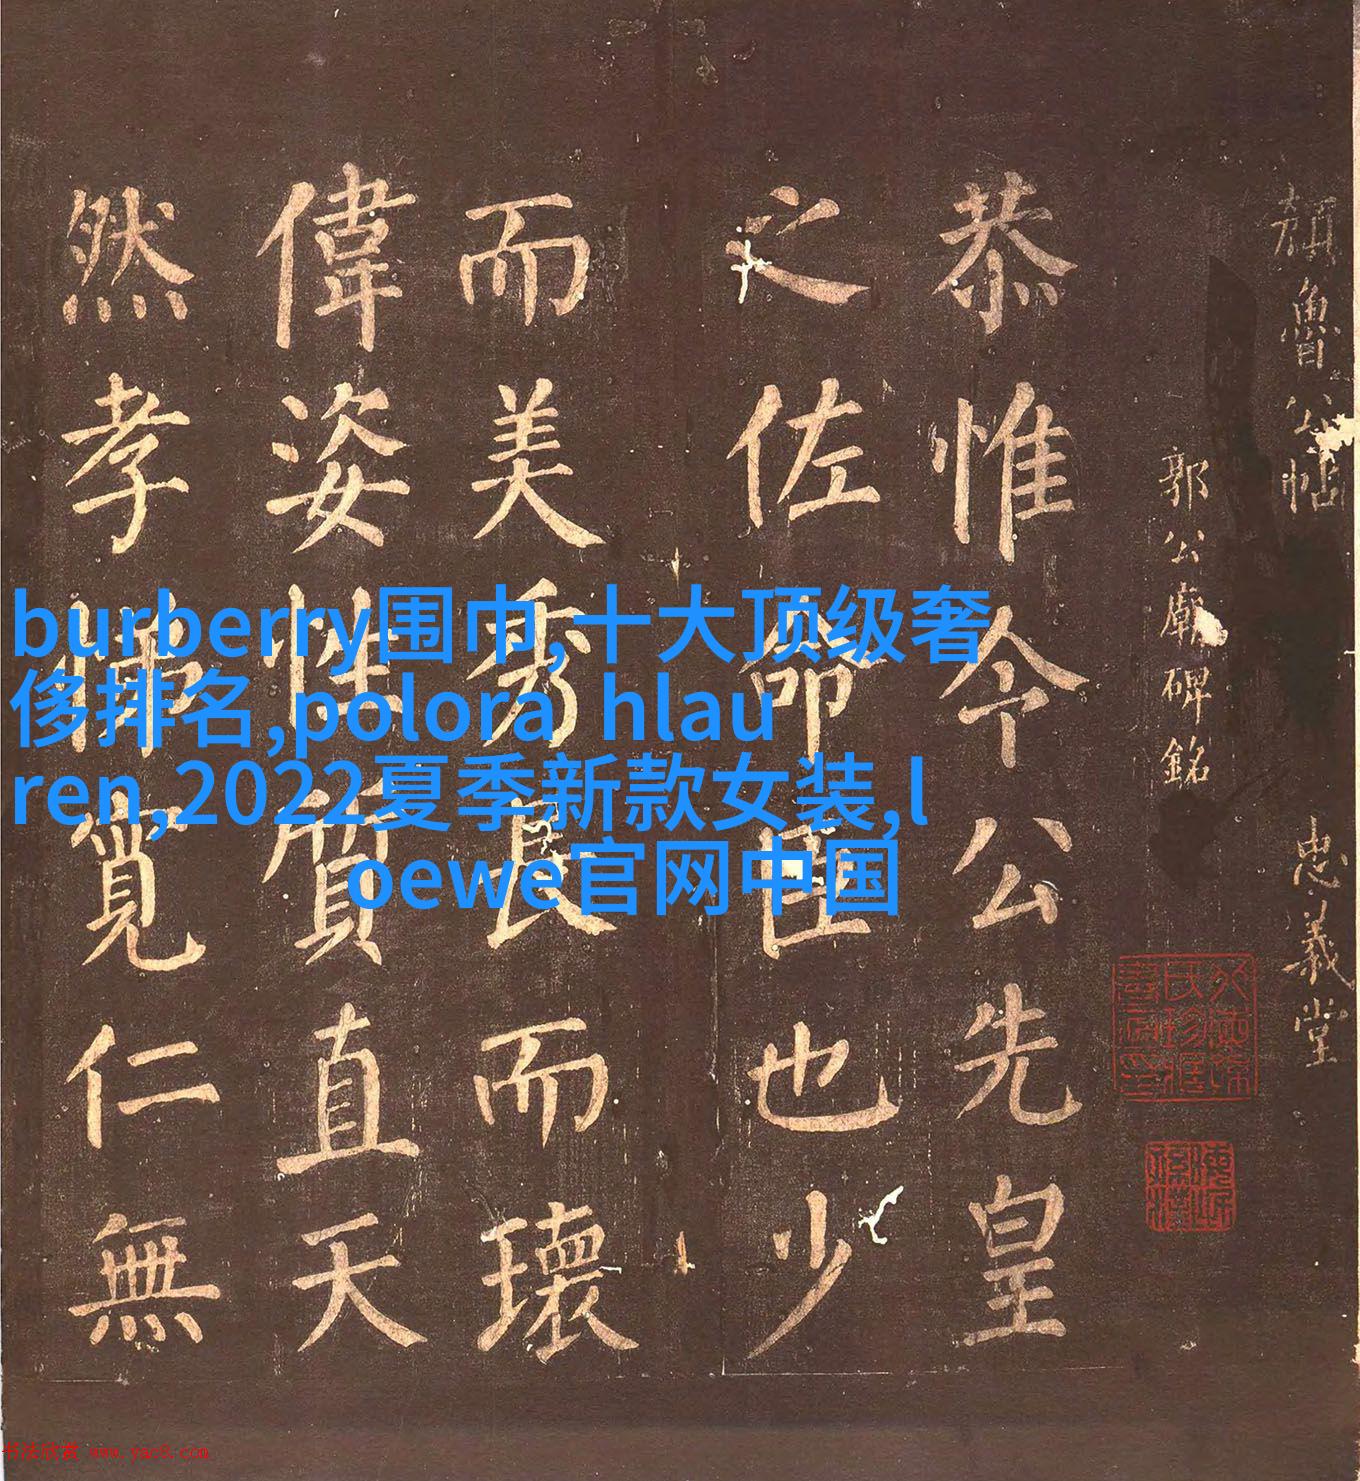 顏魯公帖 忠義堂
郭公廟碑銘
恭惟令公先皇
之佐命臣也少
而美秀長而瓌
偉姿性質直天
然孝悌寬仁無
burberry围巾,十大顶级奢
侈排名,polora hlau
ren,2022夏季新款女装,l
oewe官网中国
书法欣赏 www.yac8.com